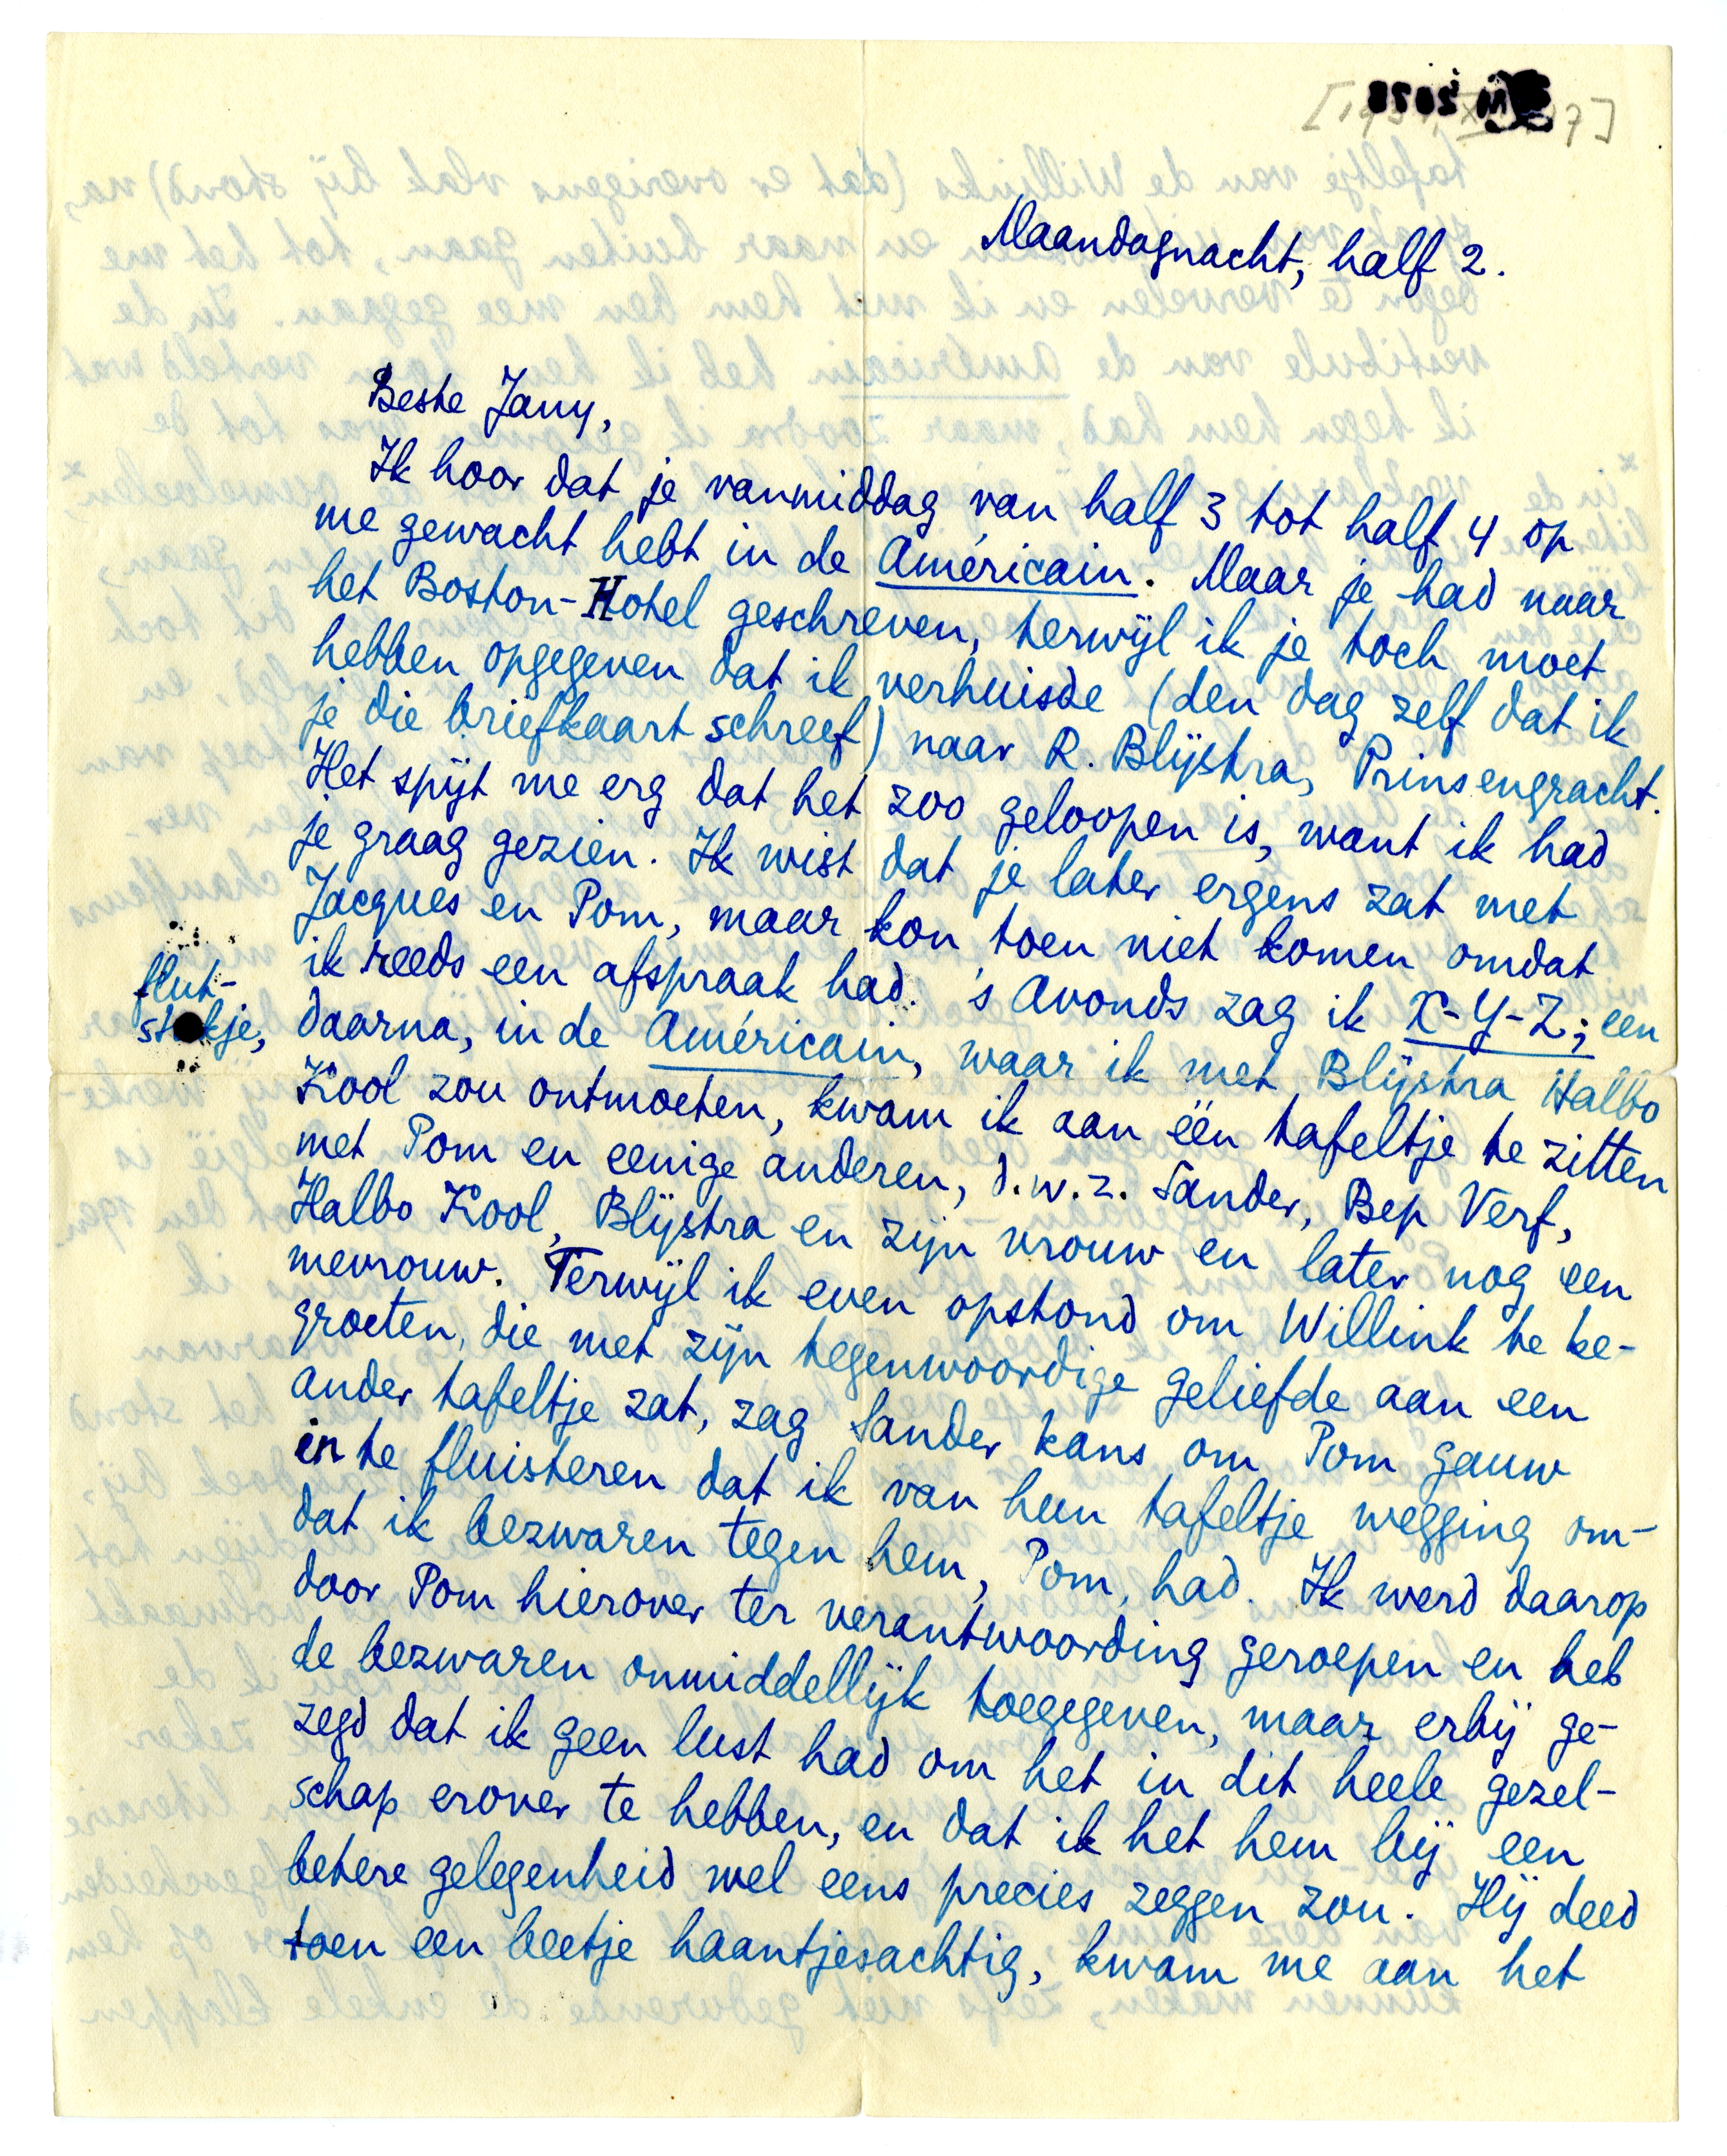 Maandagnacht, half 2.
Beste Jany,
Ik hoor dat je vanmiddag van half 3 tot half 4 op
me gewacht hebt in de Américain. Maar je had naar
het Boston-Hotel geschreven, terwijl ik je toch moet
hebben opgegeven dat ik verhuisde (den dag zelf dat ik
je die briefkaart schreef) naar R. Blijstra, Prinsengracht.
Het spijt me erg dat het zoo geloopen is, want ik had
je graag gezien. Ik wist dat je later ergens zat met
Jacques en Pom, maar kon toen niet komen omdat
ik reeds een afspraak had. 's Avonds zag ik X-Y-Z; een
flut-
stukje,
daarna, in de Américain, waar ik met Blijstra Halbo
Kool zou ontmoeten, kwam ik aan één tafeltje te zitten
met Pom en eenige anderen, d.w.z. Sander, Bep Verf,
Halbo Kool, Blijstra en zijn vrouw en later nog een
mevrouw. Terwijl ik even opstond om Willink te be-
groeten, die met zijn tegenwoordige geliefde aan een
ander tafeltje zat, zag Sander kans om Pom gauw
in te fluisteren dat ik van hun tafeltje wegging om-
dat ik bezwaren tegen hem, Pom, had. Ik werd daarop
door Pom hierover ter verantwoording geroepen en heb
de bezwaren onmiddellijk toegegeven, maar erbij ge-
zegd dat ik geen lust had om het in dit heele gezel-
schap erover te hebben, en dat ik het hem bij een
betere gelegenheid wel eens precies zeggen zou. Hij deed
toen een beetje haantjesachtig, kwam me aan het